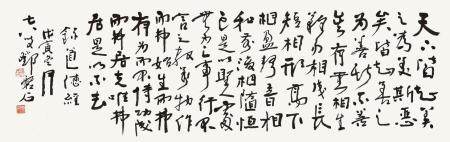 天下皆知美
之為美斯惡
矣皆知善之
為善斯不善
矣有無相生
難易相成長
短相形高下
相盈音聲相
和前後相隨恒
也是以聖人處
無為之事行不
言之教萬物作
而弗始生而弗
有為而不恃功成
而弗居夫唯弗
居是以不去
錄道德經
戊寅
七叟石